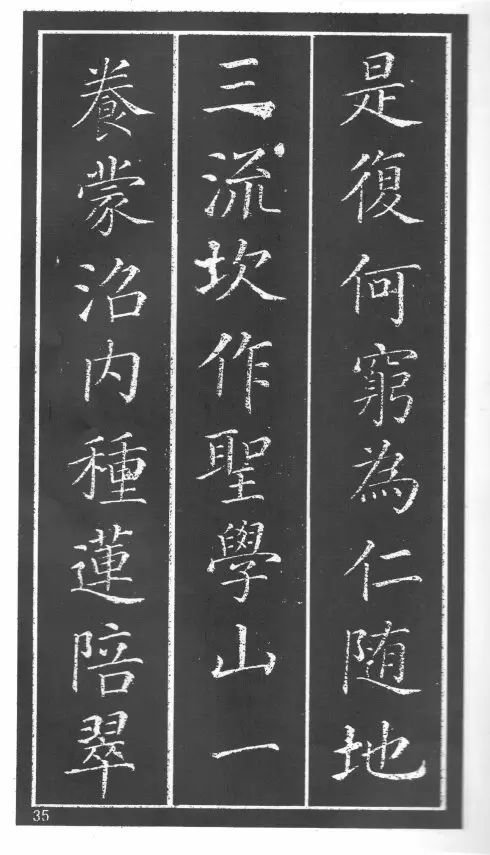 是復何窮為仁随地
三流坎作聖學山一
養蒙沼内種蓮陪翠
35